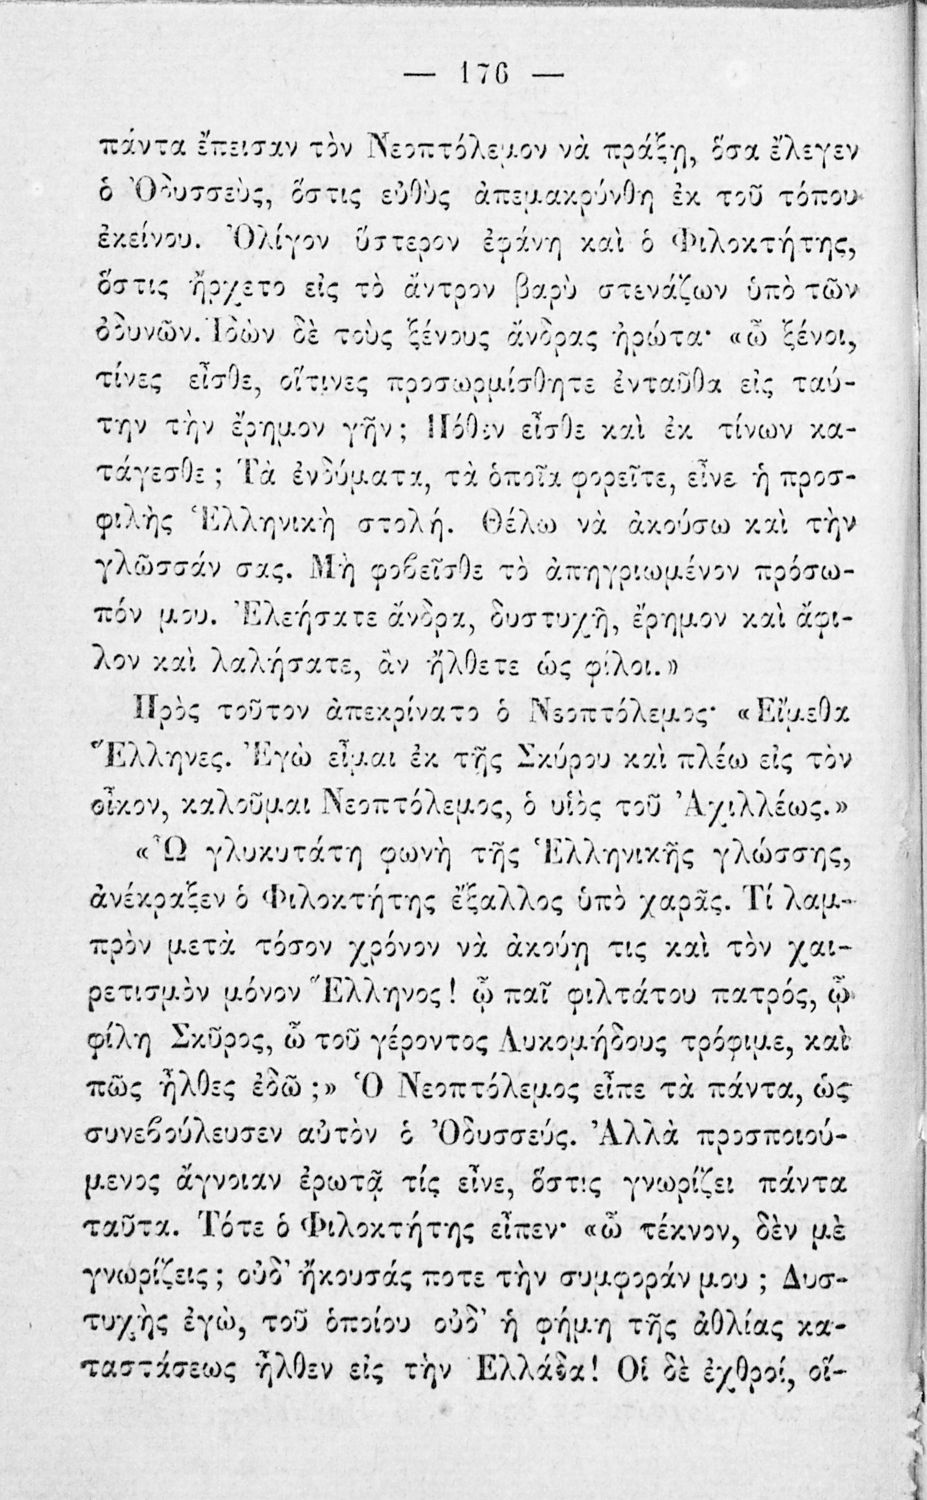 — 176 —
πάντα ἔπεισαν τὸν Νεοπτόλεμον νὰ πράξῃ, ὅσα ἔλεγεν
ὁ Ὀδυσσεὺς, ὅστις εὐθὺς ἀπεμακρύνθη ἐκ τοῦ τόπου
ἐκείνου. Ὀλίγον ὕστερον ἐφάνη καὶ ὁ Φιλοκτήτης,
ὅστις ἤρχετο εἰς τὸ ἄντρον βαρὺ στενάζων ὑπὸ τῶν
ὀδυνῶν. Ἰδὼν δὲ τοὺς ξένους ἄνδρας ἠρώτα· «ὦ ξένοι,
τίνες εἶσθε, οἵτινες προσωρμίσθητε ἐνταῦθα εἰς ταύ-
την τὴν ἔρημον γῆν; Πόθεν εἶσθε καὶ ἐκ τίνων κα-
τάγεσθε; Τὰ ἐνδύματα, τὰ ὁποῖα φορεῖτε, εἶνε ἡ προσ-
φιλὴς Ἑλληνικὴ στολή. Θέλω νὰ ἀκούσω καὶ τὴν
γλῶσσάν σας. Μὴ φοβεῖσθε τὸ ἀπηγριωμένον πρόσω-
πόν μου. Ἐλεήσατε ἄνδρα, δυστυχῆ, ἔρημον καὶ ἄφι-
λον καὶ λαλήσατε, ἂν ἤλθετε ὡς φίλοι.»
Πρὸς τοῦτον ἀπεκρίνατο ὁ Νεοπτόλεμος· «Εἴμεθα
Ἕλληνες. Ἐγὼ εἶμαι ἐκ τῆς Σκύρου καὶ πλέω εἰς τὸν
οἶκον, καλοῦμαι Νεοπτόλεμος, ὁ υἱὸς τοῦ Ἀχιλλέως.»
«Ὦ γλυκυτάτη φωνὴ τῆς Ἑλληνικῆς γλώσσης,
ἀνέκραξεν ὁ Φιλοκτήτης ἔξαλλος ὑπὸ χαρᾶς. Τί λαμ-
πρὸν μετὰ τόσον χρόνον νὰ ἀκούῃ τις καὶ τὸν χαι-
ρετισμὸν μόνον Ἕλληνος! ᾧ παῖ φιλτάτου πατρός, ᾧ
φίλη Σκῦρος, ὦ τοῦ γέροντος Λυκομήδους τρόφιμε, καὶ
πῶς ἦλθες ἐδῶ;» Ὁ Νεοπτόλεμος εἶπε τὰ πάντα, ὡς
συνεβούλευσεν αὐτὸν ὁ Ὀδυσσεύς. Ἀλλὰ προσποιού-
μενος ἄγνοιαν ἐρωτᾷ τίς εἶνε, ὅστις γνωρίζει πάντα
ταῦτα. Τότε ὁ Φιλοκτήτης εἶπεν· «ὦ τέκνον, δὲν μὲ
γνωρίζεις; οὐδ' ἤκουσάς ποτε τὴν συμφοράν μου; Δυσ-
τυχὴς ἐγὼ, τοῦ ὁποίου οὐδ' ἡ φήμη τῆς ἀθλίας κα-
ταστάσεως ἦλθεν εἰς τὴν Ἑλλάδα! Οἱ δὲ ἐχθροί, οἵ-